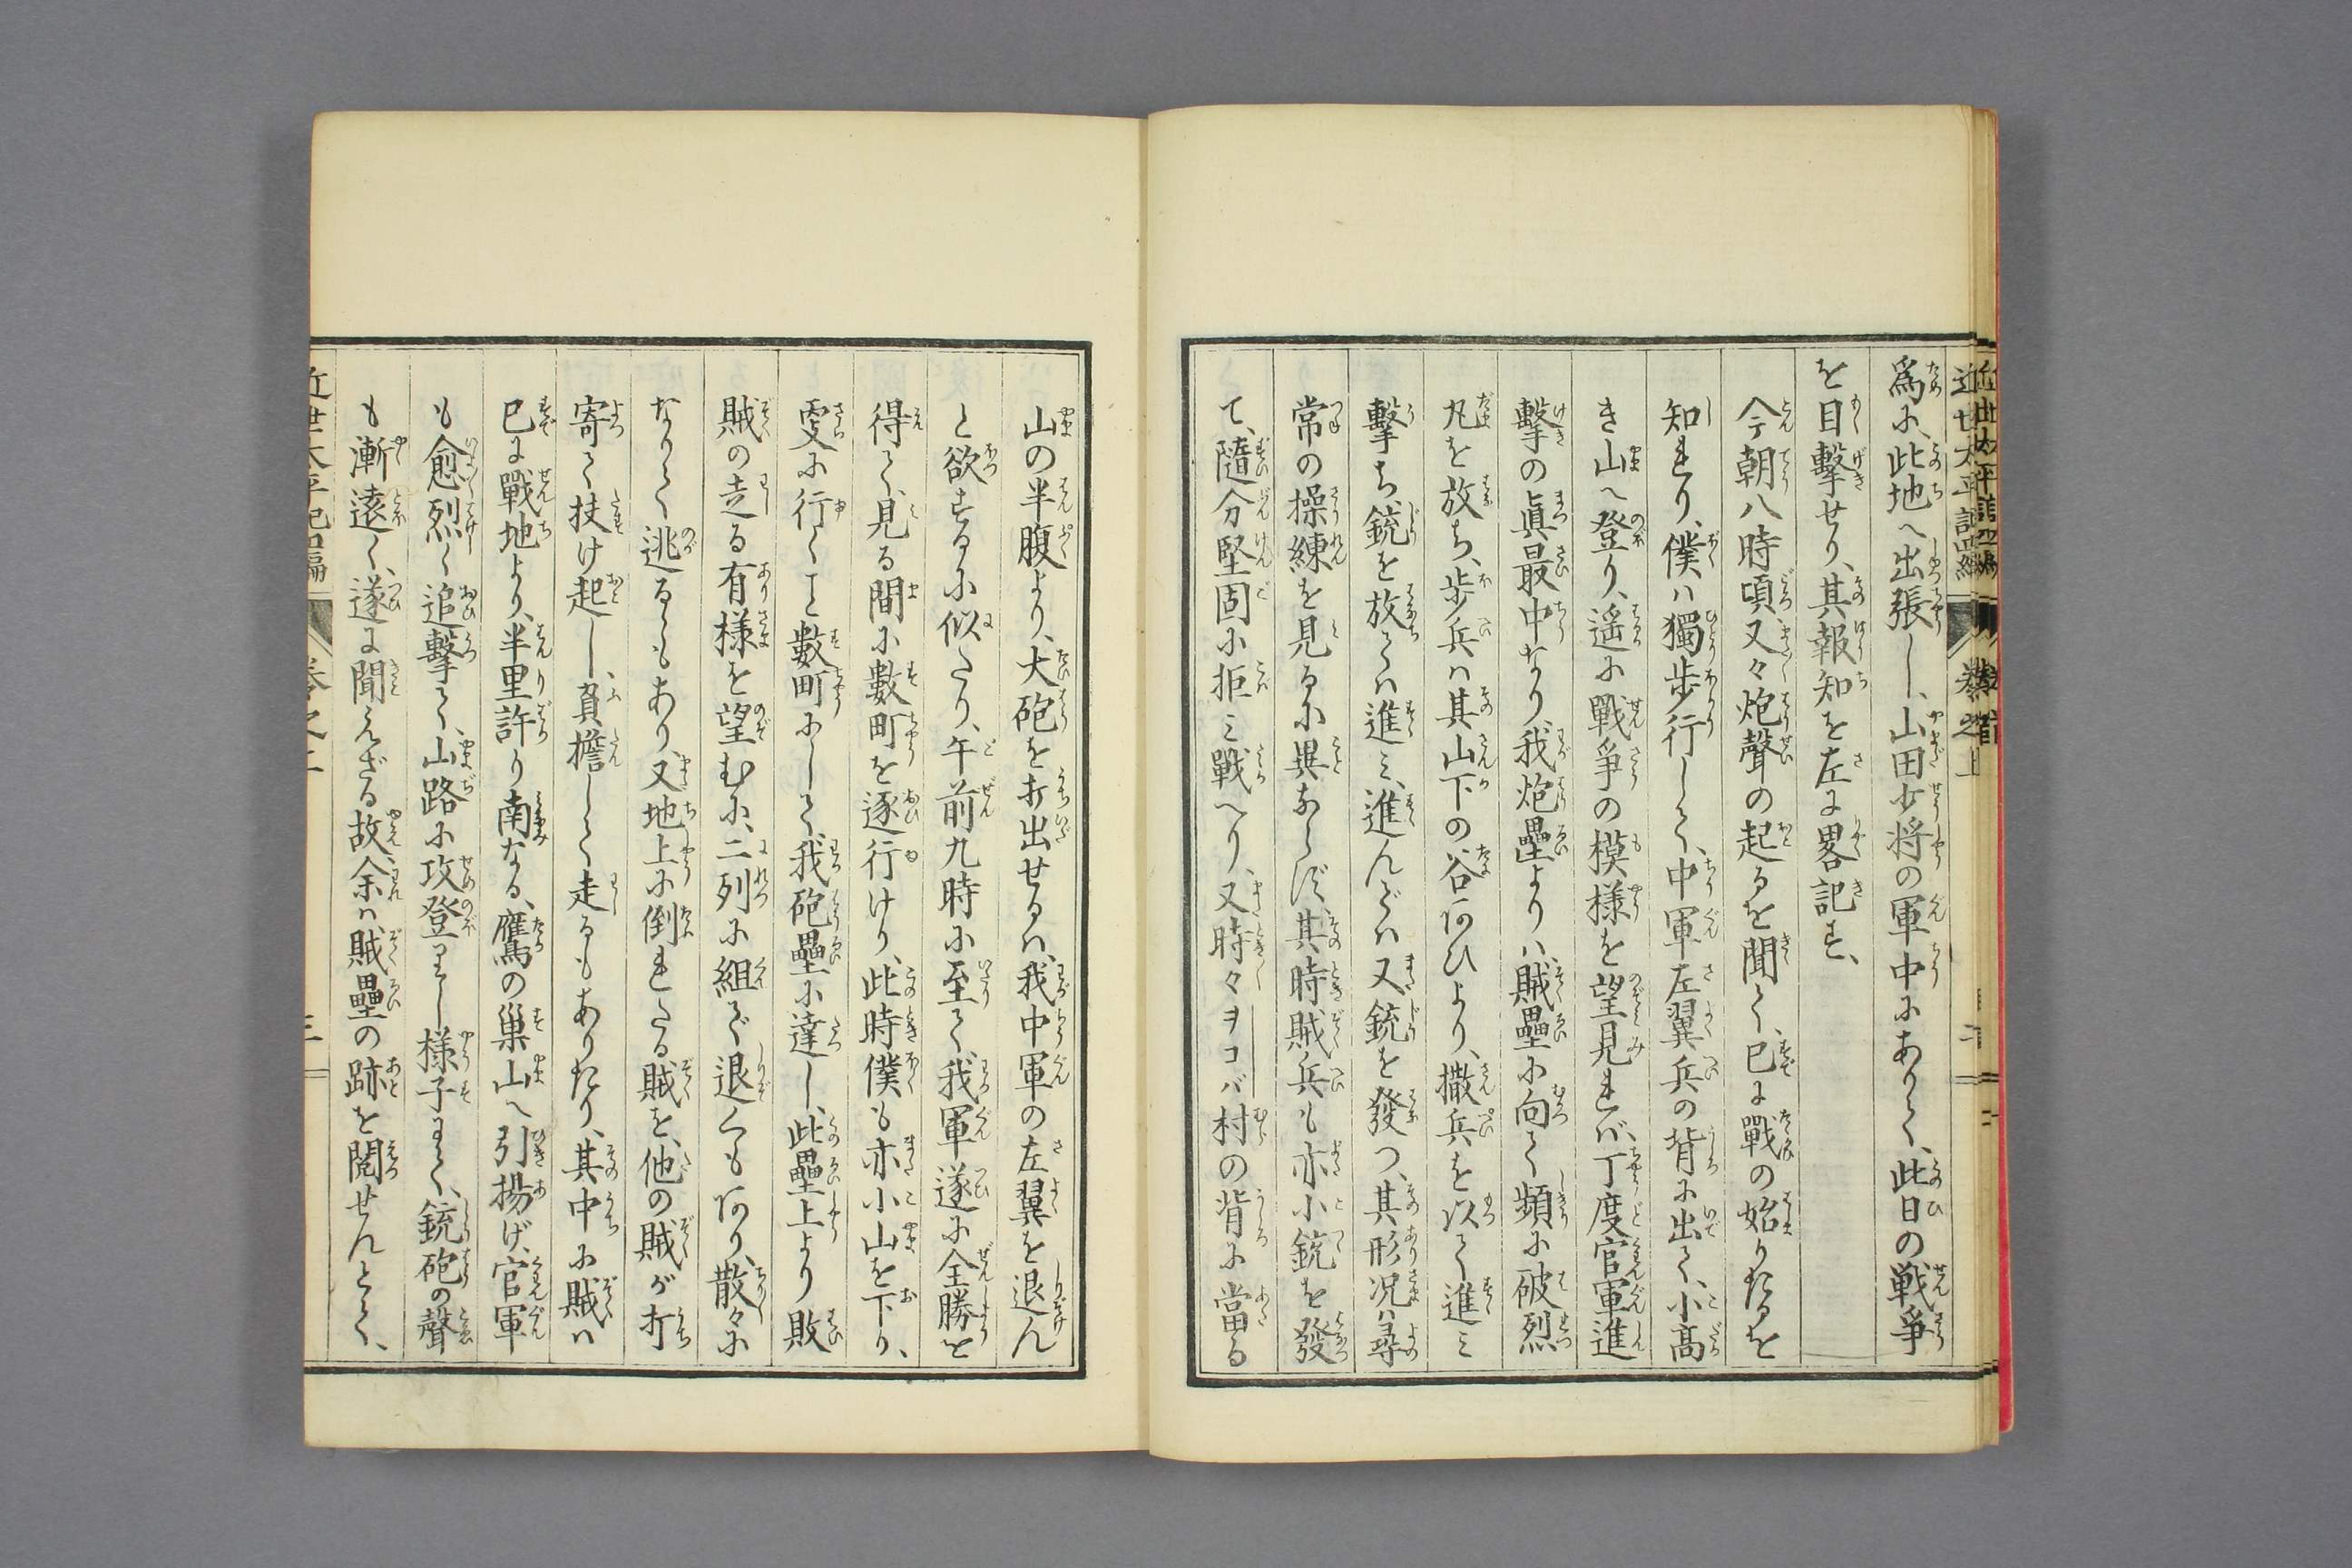 爲に、此地へ出張し、山田少将の軍中にありて、此日の戦爭
を目擊せり、其報知を左に畧記す、
今朝八時頃、又々炮聲の起るを聞て、已に戰の始りたるを
知れり、僕ハ獨歩行して、中軍左翼兵の背に出て、小高
き山へ登り、遥に戰爭の模様を望見れバ、丁度官軍進
擊の眞最中なり我炮壘よりハ、賊壘に向て頻に破烈
丸を放ち、歩兵ハ其山下の谷アひより、撒兵を以て進ミ
擊ち、銃を放てハ進ミ、進んでハ又銃を發つ、其形况ハ尋
常の操練を見るに異ならず、其時賊兵も亦小銃を發
て、隨分堅固に拒ミ戰へり、又時々ヲコバ村の背に當る
山の半腹より、大砲を打出せるハ、我中軍の左翼を退ん
と欲するに似たり、午前九時に至て我軍遂に全勝を
得て、見る間に數町を逐行けり、此時僕も亦小山を下り、
更に行くこと數町にして、我砲壘に達し、此壘上より敗
賊の走る有様を望むに、二列に組で退くもアり、散々に
なりて逃るゝもあり、又地上に倒れたる賊を、他の賊が打
寄て扶け起し、負擔して走るもありたり、其中に賊ハ
已に戰地より、半里許り南なる、鷹の巢山へ引揚げ、官軍
も愈烈く追擊て、山路に攻登りし様子にて、銃砲の聲
も漸遠く、遂に聞えざる故、余ハ賊壘の跡を閲せんとて、